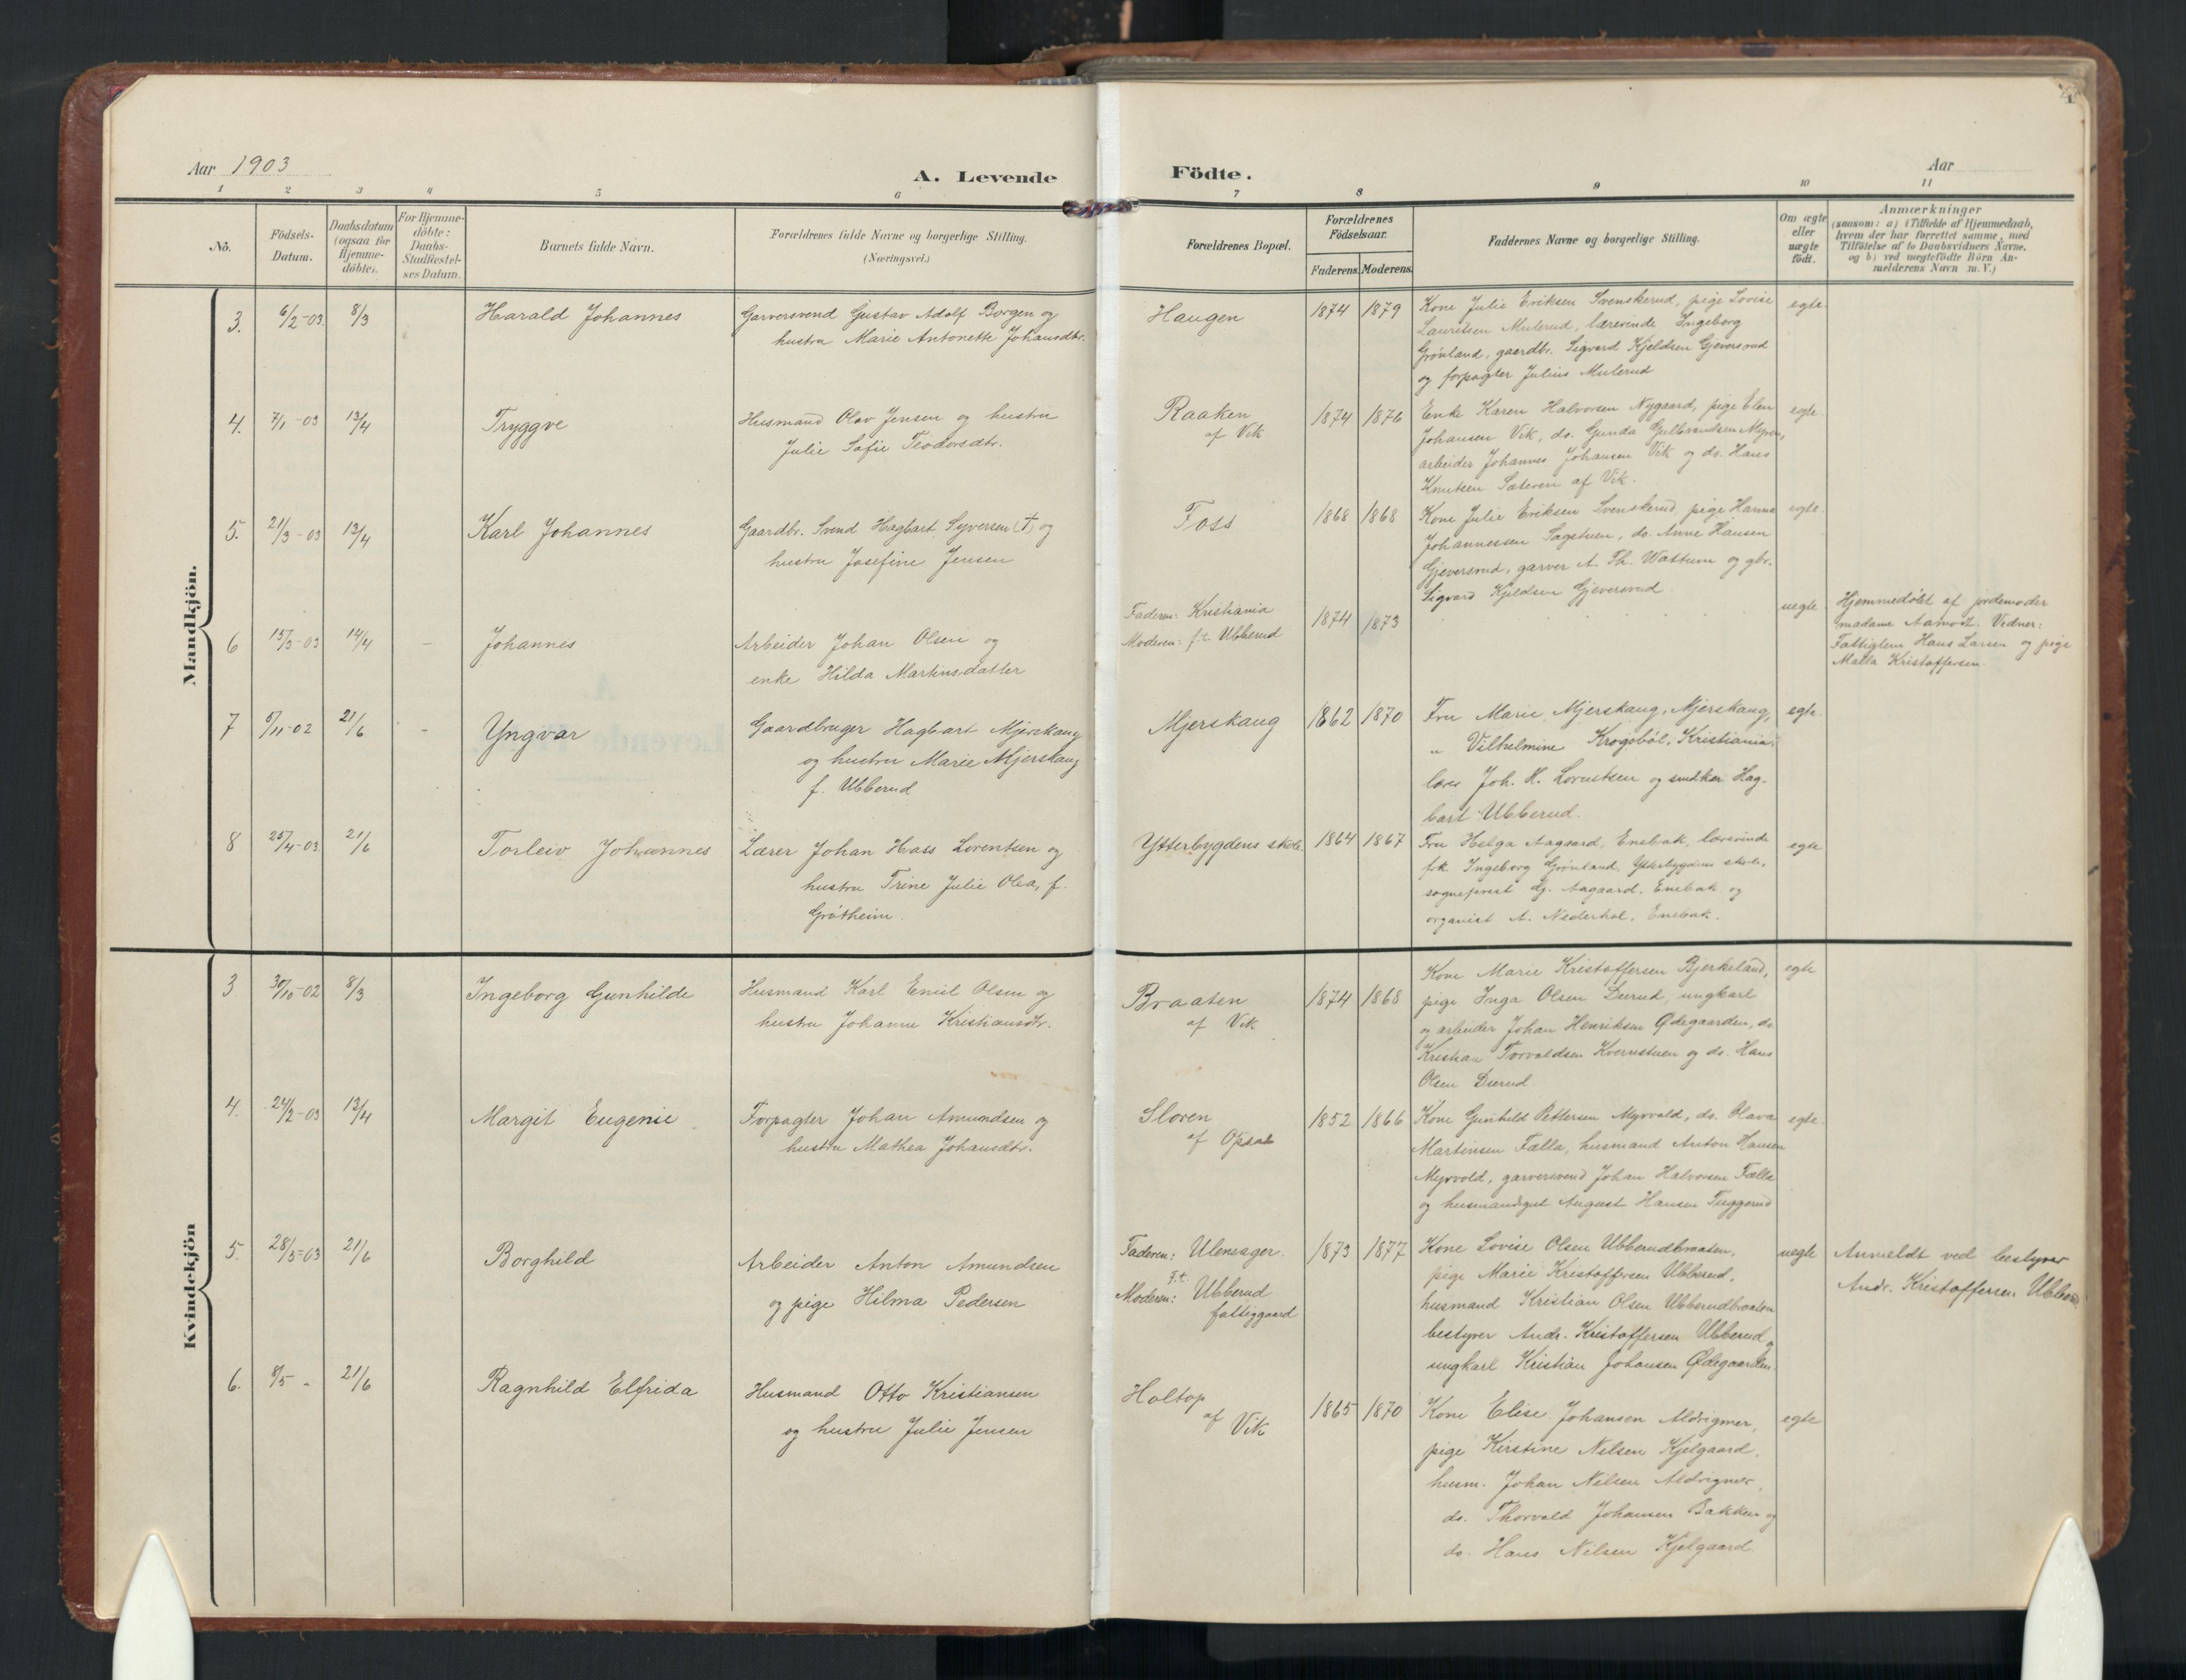 Aar 1903
A. Levende
Födte.
Aar
1 2 3 4 5 6 7 8 9 10 11
No.
Födsels-Datum.
Daabsdatum (ogsaa for Hjemme-döbte).
For Hjemme-döbte: Daabs-Stadfæstel-ses Datum.
Barnets fulde Navn.
Forældrenes fulde Navne og borgerlige Stilling.
(Næringsvei.)
Forældrenes Bopæl.
Forældrenes Födselsaar.
Faderens. Moderens.
Faddernes Navne og borgerlige Stilling.
Om ægte eller uægte födt.
Anmærkninger
(saasom: a) i Tilfælde af Hjemmedaab,
hvem der har forrettet samme, med
Tilföielse af to Daabsvidners Navne,
og b) ved uægtefödte Börn An-
melderens Navn m. V.)
Mandkjön.
3. 6/2-03 8/3 Harald Johannes
Garversvend Gustav Adolf Borgen og
hustru Marie Antonette Johansdtr.
Haugen 1874 1879
Kone Julie Eriksen Svenskerud, pige Lovise
Lauritsen Mulerud, lærerinde Ingeborg
Grönland, gaardbr. Sigvard Kjeldsen Gjeversrud
og forpagter Julius Mulerud
egte
4. 7/1-03 13/4 Tryggve
Husmand Olav Jensen og hustru
Julie Sofie Teodorsdtr.
Raaken
af Vik
1874 1876
Enke Karen Halvorsen Nygaard, pige Elen
Johansen Vik, do. Gunda Gulbrandsen Myren,
arbeider Johannes Johansen Vik og do. Hans
Knutsen Sæteren af Vik.
egte
5. 21/3-03 13/4 Karl Johannes
Gaardbr. Svend Hagbart Syversen (†) og
hustru Josefine Jensen
Foss 1868 1868
Kone Julie Eriksen Svenskerud, pige Hanna
Johannessen Sagstuen, do. Anne Hansen
Gjeversrud, garver A. Th. Wattum og gbr.
Sigvard Kjeldsen Gjeversrud
egte.
6 15/3-03 14/4 - Johannes
Arbeider Johan Olsen og
enke Hilda Martinsdatter
Faderen: Kristiania
Moderen: f.t. Ubberud
1874 1873
uegte
Hjemmedöbt af jordemoder
madame Aamodt. Vidner:
Fattiglem Hans Larsen og pige
Malla Kristoffersen.
7 5/11-02 21/6 - Yngvar
Gaardbruger Hagbart Mjerskaug
og hustru Marie Mjerskaug
f. Ubberud
Mjerskaug 1862 1870
Fru Marie Mjerskaug, Mjerskaug,
" Vilhelmine Krogsböl, Kristiania,
lærer Joh. H. Lorentsen og snedker Hag-
bart Ubberud.
egte.
8 25/4-03 21/6 Torleiv Johannes
Lærer Johan Hass Lorentsen og
hustru Trine Julie Olea, f.
Grötheim.
Ytterbygdens skole 1864 1867
Fru Helga Aagaard, Enebak, lærerinde
frk. Ingeborg Grönland, Ytterbygdens skole,
sogneprest Aagaard, Enebak og
organist A. Nederhol, Enebak.
egte
Kvindekjön
3 30/10-02 8/3 Ingeborg Gunhilde
Husmand Karl Emil Olsen og
hustru Johanne Kristiansdtr.
Braaten
af Vik
1874 1868
Kone Marie Kristoffersen Bjerkeland,
pige Inga Olsen Durud, ungkarl
og arbeider Johan Henriksen Ødegaarden, do.
Kristian Torvaldsen Kvernstuen og do. Hans
Olsen Durud.
egte
4. 24/2-03 13/4 Margit Eugenie
Forpagter Johan Amundsen og
hustru Mathea Johansdtr.
Sloren
af Opsal
1852 1866
Kone Gunhild Pettersen Myrvold, do. Olava
Martinsen Fælla, husmand Anton Hansen
Myrvold, garversvend Johan Halvorsen Fælla
og husmandsgut August Hansen Tuggerud
egte.
5. 28/3-03 21/6 Borghild
Arbeider Anton Amundsen
og pige Hilma Pedersen
Faderen: Ulensager.
Moderen: f.t. Ubberud
fattiggaard
1873 1877
Kone Lovise Olsen Ubberudbraaten,
pige Marie Kristoffersen Ubberud,
husmand Kristian Olsen Ubberudbraaten
bestyrer Andr. Kristoffersen Ubberud og
ungkarl Kristian Johansen Ødegaarden.
uegte
Anmeldt ved bestyrer
Andr. Kristoffersen Ubberud
6. 8/5 - 21/6 Ragnhild Elfrida
Husmand Otto Kristiansen
og hustru Julie Jensen
Holtop
af Vik
1865 1870
Kone Elise Johansen Aldrigmer,
pige Kirstine Nilsen Kjelgaard,
husm. Johan Nilsen Aldrigmer,
do. Thorvald Johansen Bakken og
do. Hans Nilsen Kjelgaard.
egte